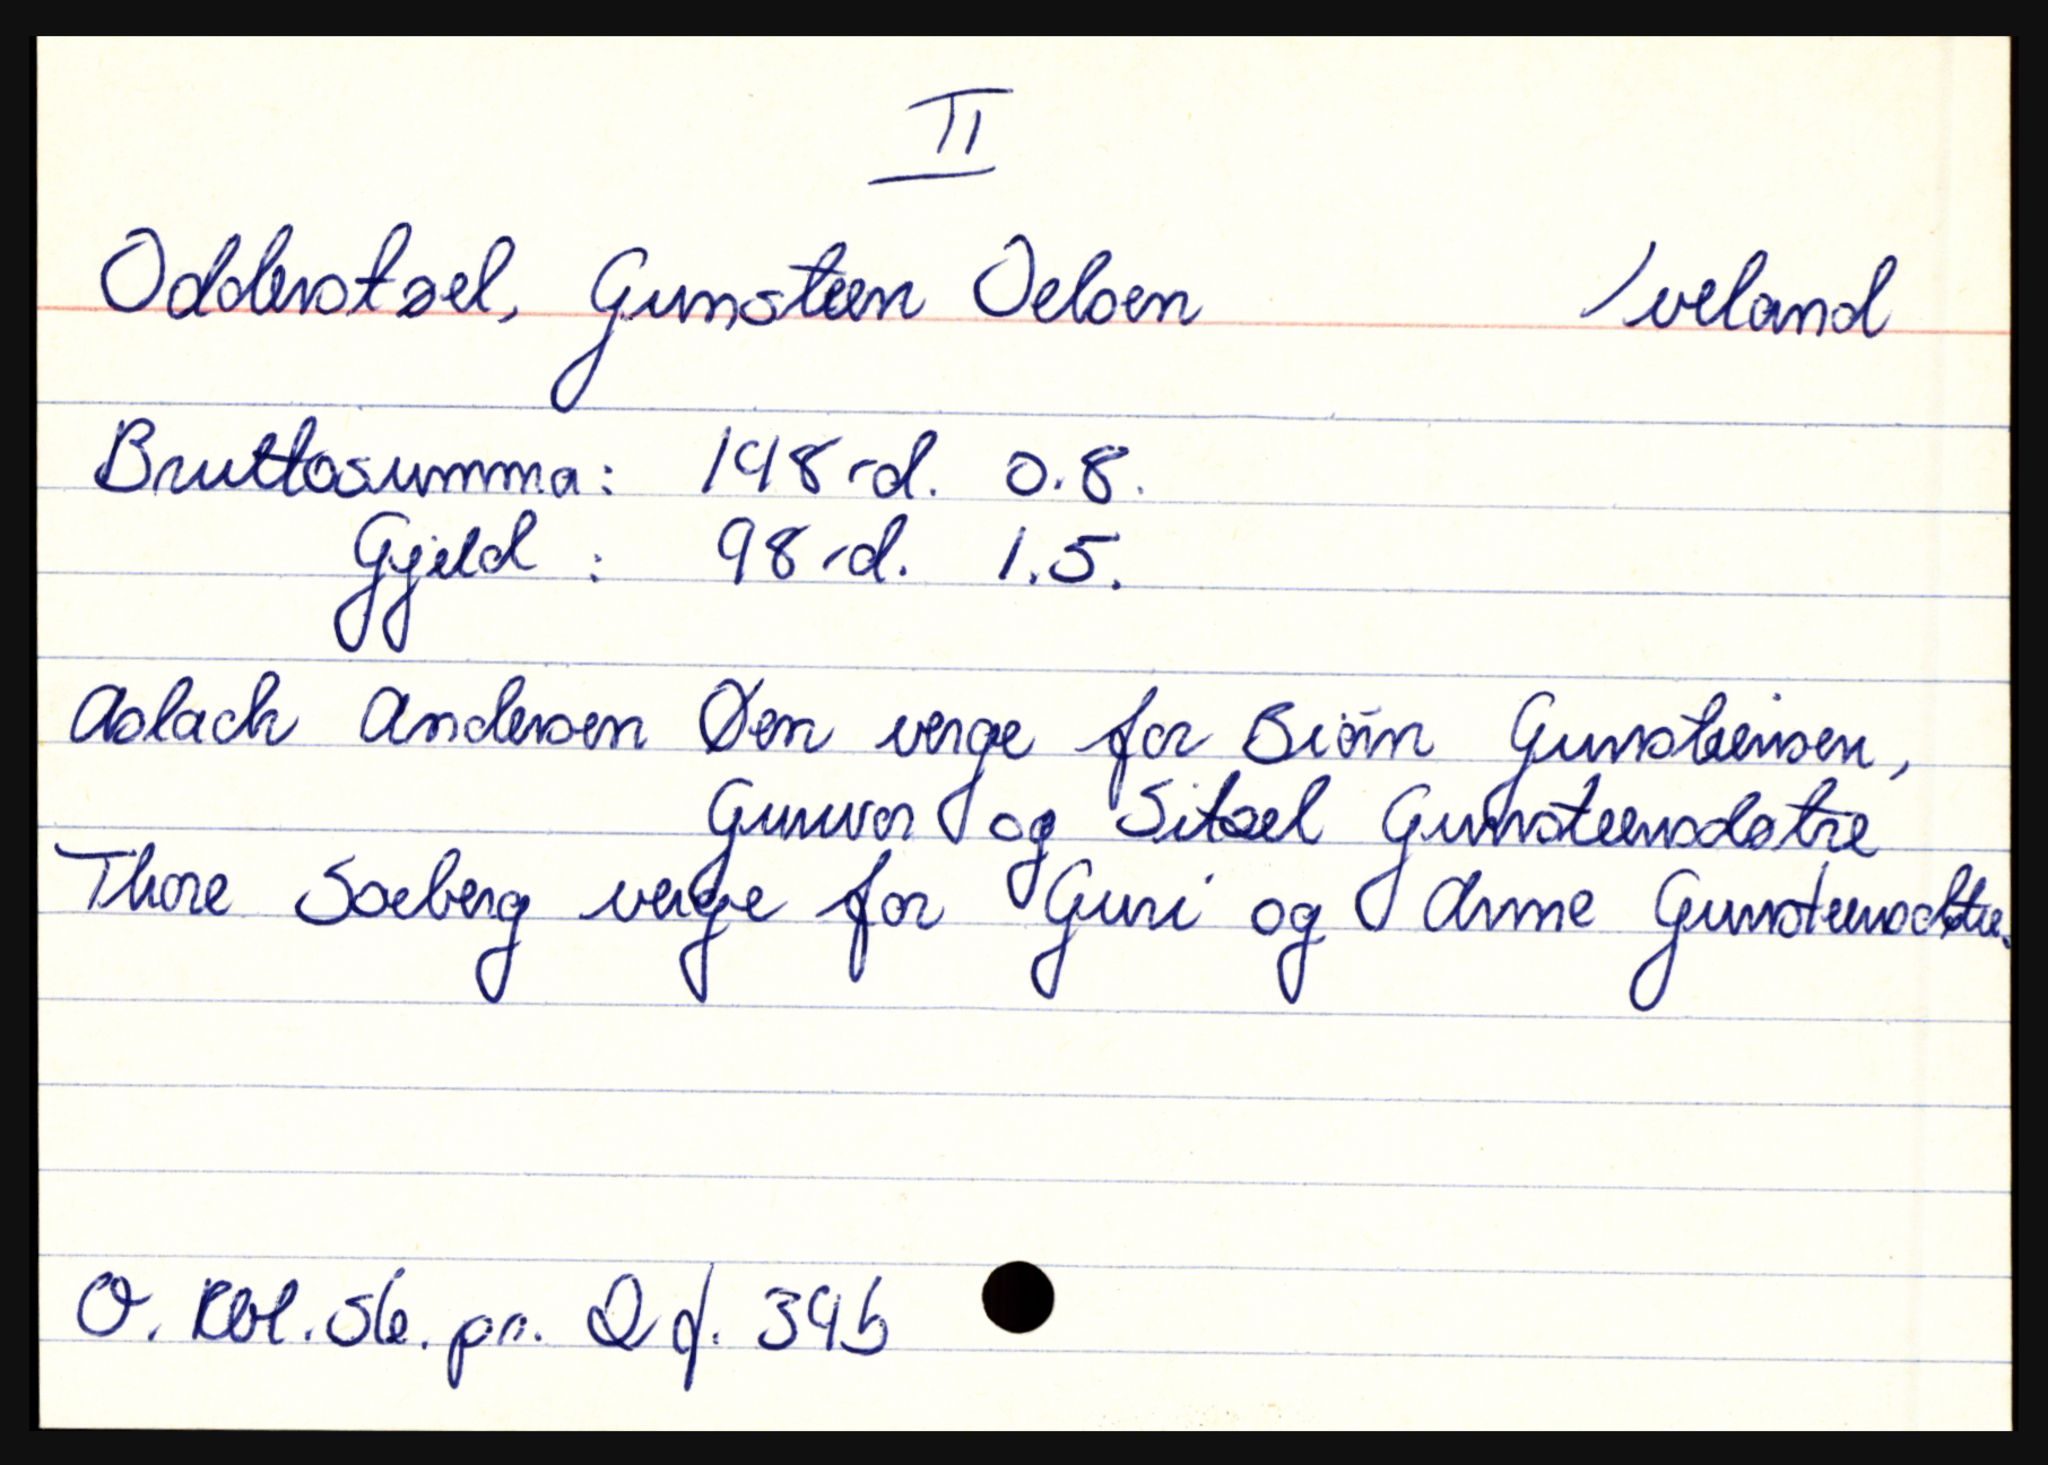 II
Odderstøel, Gunsteen Oelsen Iveland
Bruttosumma: 148 rd. 0.8.
Gjeld : 98 rd. 1.5.
Aslach Andersen Øen verge for Biörn Gunsteinsen,
Gunvor og Sitsel Gunsteensdøtre
Thore Soeberg verge for Guri og Anne Gunsteensdtre.
O. Rbl. Sk. pr. 2 f. 34b